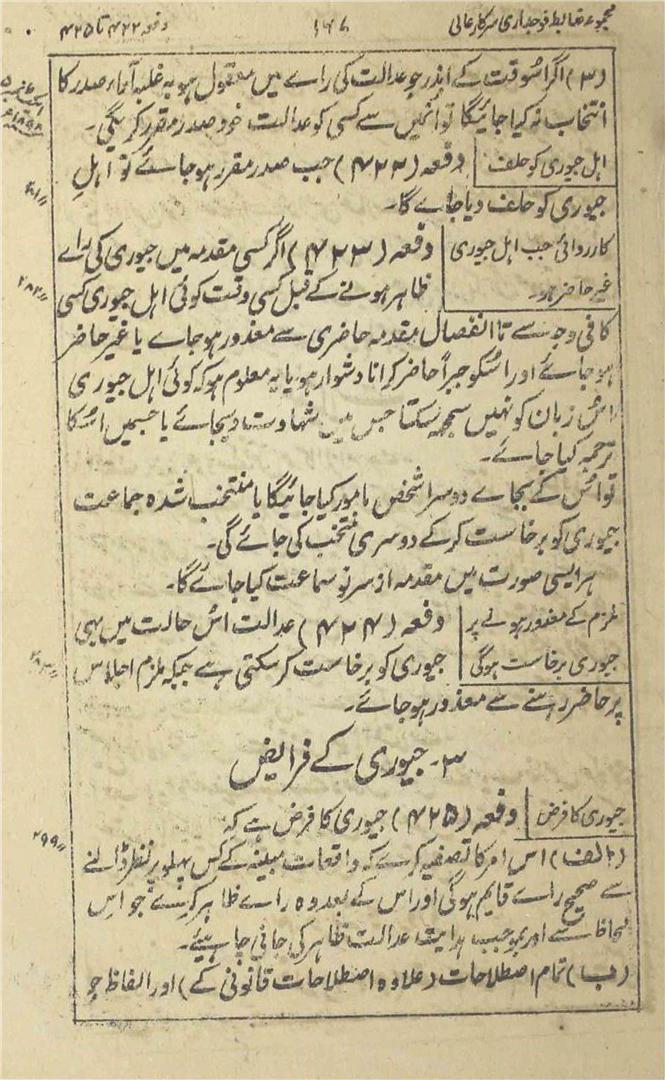 مجموعہ ضابطہ فوجداری سرکار عالی
۱۴۷
دفعہ ۴۲۲ تا ۴۲۵
(۳) اگر اسوقت کے اندر جو عدالت کی راے میں معقول ہو بہ غلبہ آراء صدر کا
انتخاب نہ کیا جائیگا تو انہیں سے کسی کو عدالت خود صدر مقرر کریگی۔
اہل جیوری کو حلف
دفعہ (۴۲۲) جب صدر مقرر ہو جائے تو اہلِ
جیوری کو حلف دیا جاے گا۔
۲۸۱ //
کارروائی جب اہل جیوری
غیر حاضر ہو۔
دفعہ (۴۲۳) اگر کسی مقدمہ میں جیوری کی راے
ظاہر ہونے کے قبل کسی وقت کوئی اہل جیوری کسی
۲۸۲ //
کافی وجہ سے تا انفصال مقدمہ حاضری سے معذور ہو جاے یا غیر حاضر
ہو جائے اور اسکو جبراً حاضر کرانا دشوار ہو یا یہ معلوم ہو کہ کوئی اہل جیوری
اس زبان کو نہیں سمجھ سکتا جس میں شہادت دیجائے یا جسمیں اسکا
ترجمہ کیا جائے۔
تو اس کے بجاے دوسرا شخص مامور کیا جائیگا یا منتخب شدہ جماعت
جیوری کو برخاست کر کے دوسری منتخب کی جائے گی۔
ہر ایسی صورت میں مقدمہ از سر نو سماعت کیا جائے گا۔
ملزم کے معذور ہونے پر
جیوری برخاست ہوگی
دفعہ (۴۲۴) عدالت اس حالت میں بھی
جیوری کو برخاست کر سکتی ہے جبکہ ملزم اجلاس
۲۸۳ //
پر حاضر رہنے سے معذور ہو جائے۔
۳۔ جیوری کے فرایض
جیوری کا فرض
دفعہ (۴۲۵) جیوری کا فرض ہے کہ
۲۹۹ //
(الف) اس امر کا تصفیہ کرے کہ واقعات مبینہ کے کس پہلو پر نظر ڈالنے
سے صحیح راے قایم ہوگی اور اس کے بعد وہ راے ظاہر کرے جو اس
لحاظ سے اور بموجب ہدایت عدالت ظاہر کی جانی چاہیئے۔
(ب) تمام اصطلاحات (علاوہ اصطلاحات قانونی کے) اور الفاظ جو